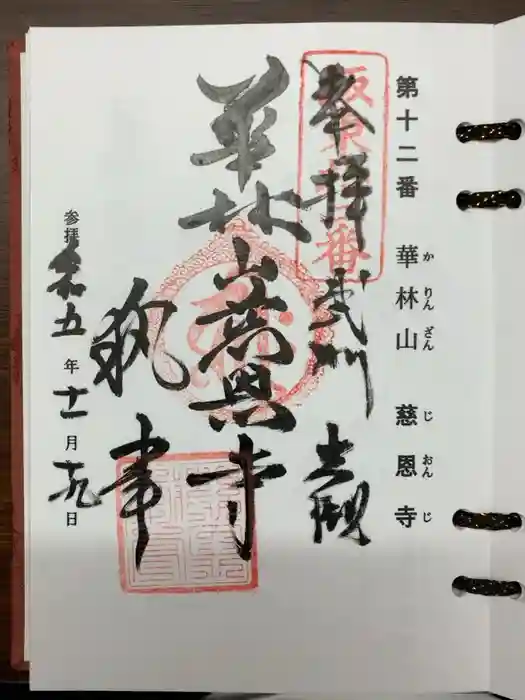 第十二番 華林山 慈恩寺
か りん ざん じ おん じ
奉拝 武州 岩槻
坂東十二番
華林山慈恩寺
執事
参拝 令和五年十一月十九日